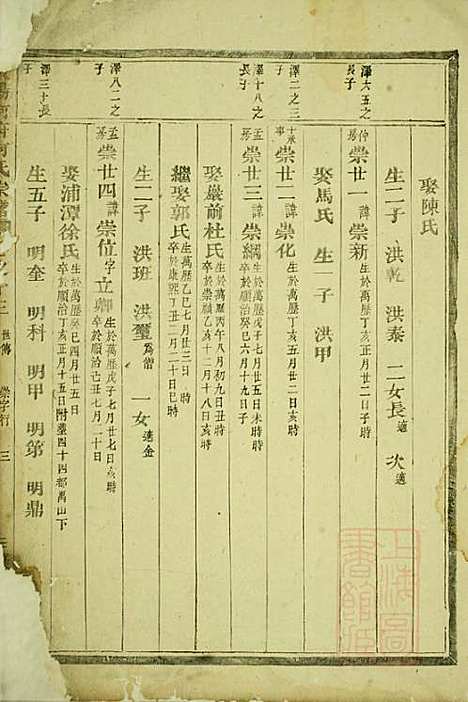 娶陳氏
生二子 洪乾 洪泰 二女長適 次適
澤大五之長子
仲房崇廿一諱崇新 生於萬歷丁亥六月廿二日子時
娶馬氏 生一子 洪甲
澤二之三子
十承事崇廿二諱崇化 生於萬歷丁亥五月廿二日亥時
澤十八之長子
孟房崇廿三諱崇綱 生於萬歷戊子七月廿五日未時 卒於順治癸巳六月十九日子時
娶嚴前杜氏 生於萬歷丙午八月初九日丑時 卒於崇禎乙亥十二月十八日亥時
繼娶郭氏 生於萬歷乙巳七月廿三日 時 卒於康熙丁丑二月二十日巳時
生二子 洪班 洪璽為僧 一女適金
澤八二之子
孟房崇廿四諱崇位字立卿 生於萬歷戊子七月廿七日亥時 卒於順治己丑七月二十日
娶浦潭徐氏 生於萬歷癸巳四月廿五日 卒於順治丁亥正月十五日附葬四十四都萬山下
澤三十長子
生五子 明奎 明科 明甲 明第 明鼎
世傳 崇字行 三
上海圖書館藏